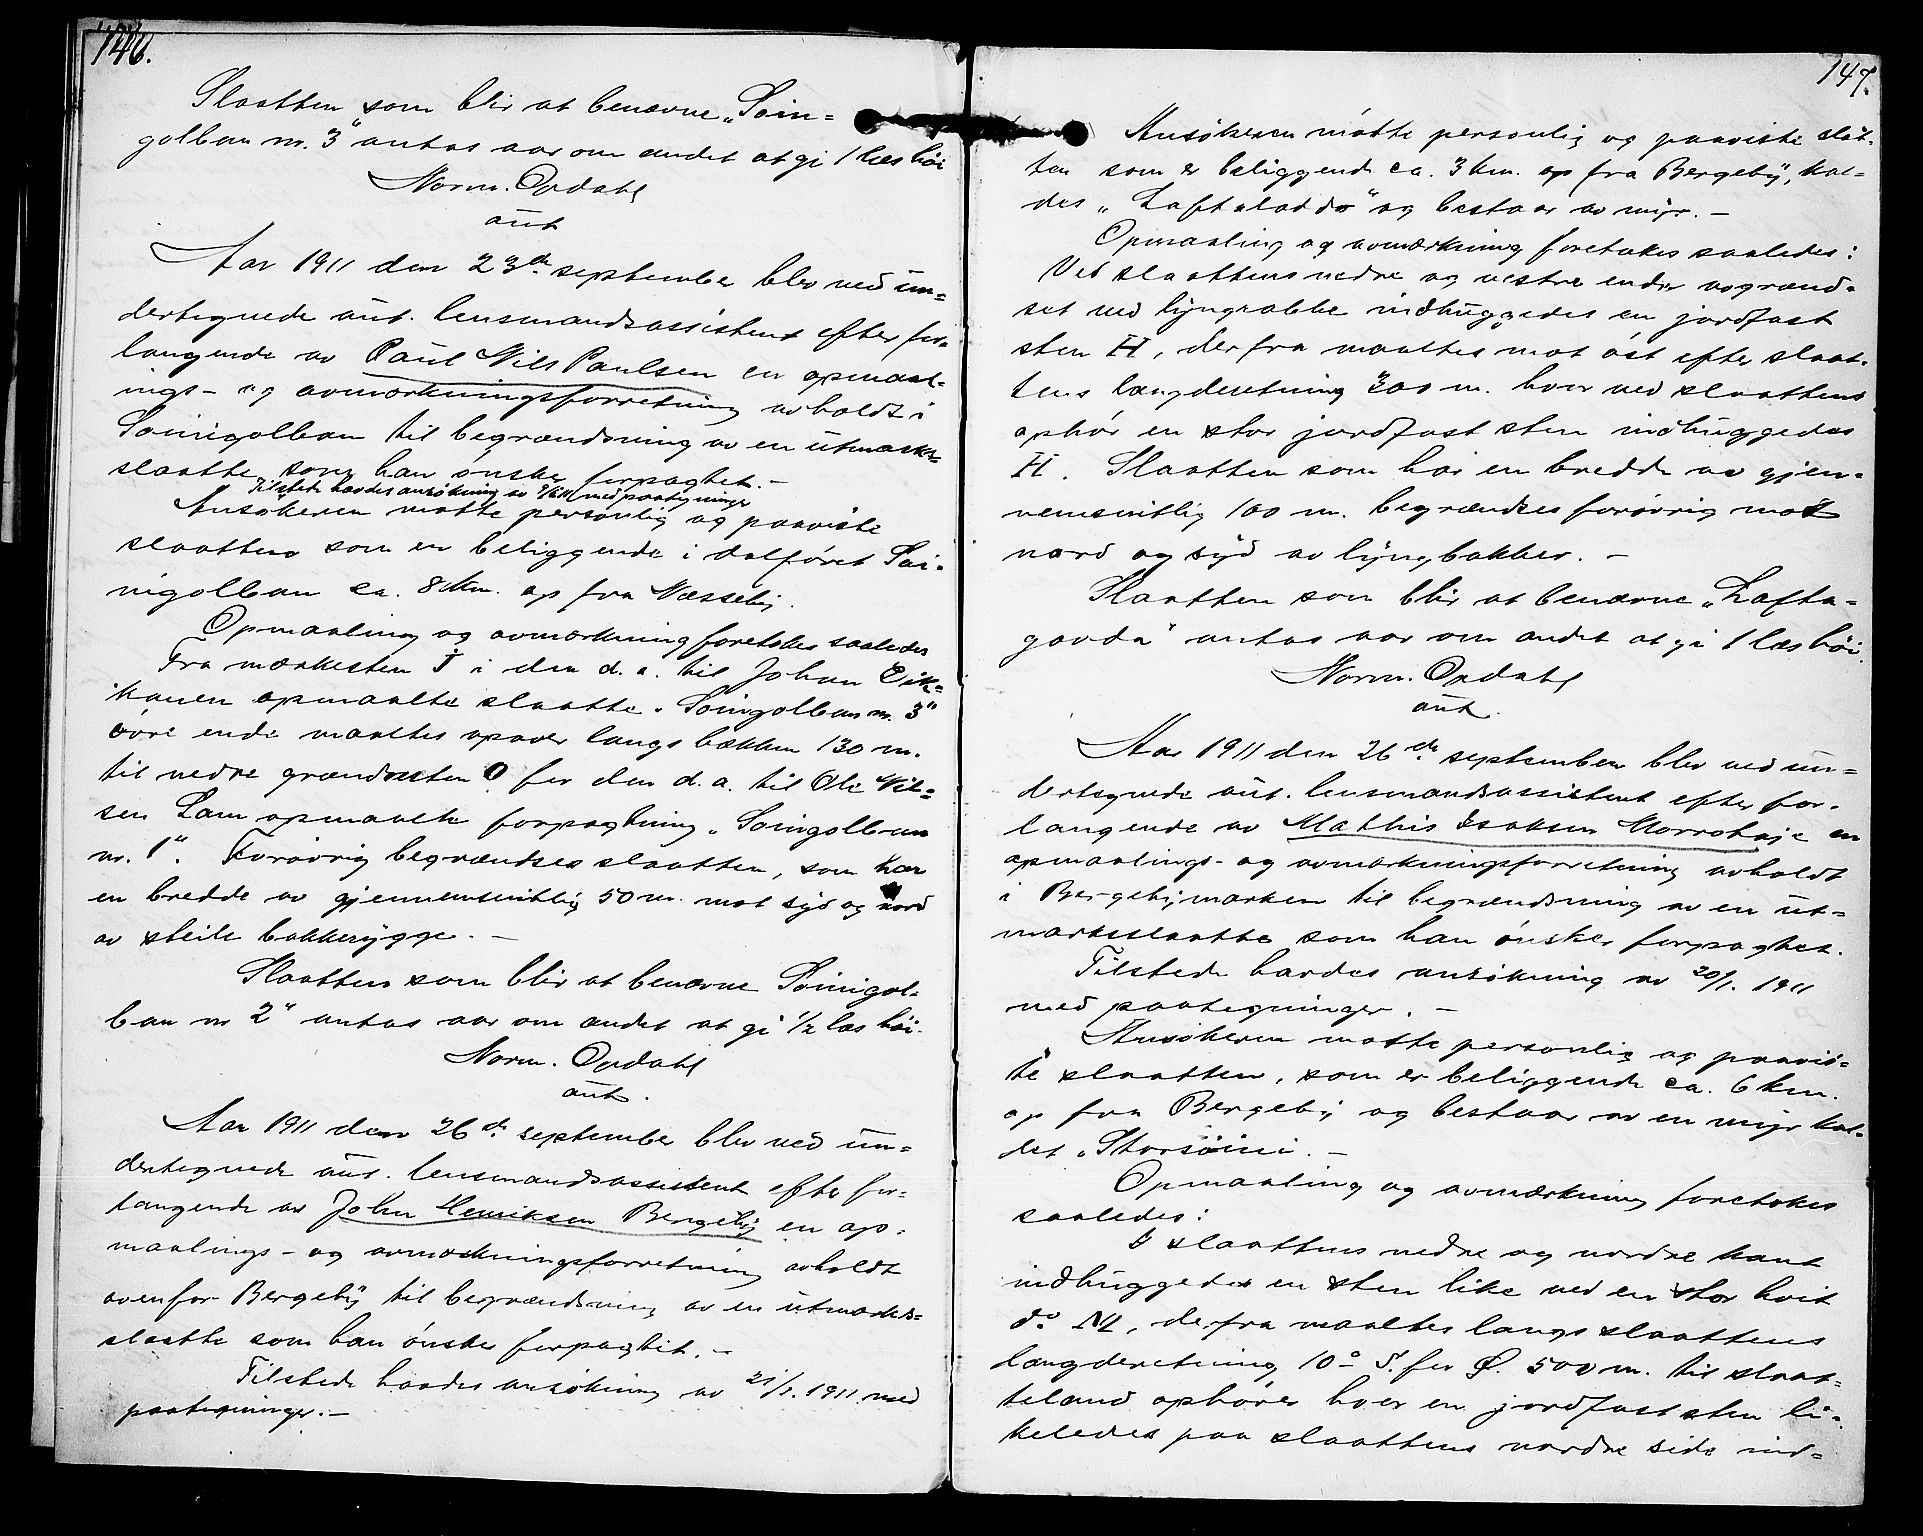 146.
Slaatten som blir at benævne „Soin=
golban nr. 3" antas aar om andet at gi 1 læs høi
Norm. Opdahl
aut
Aar 1911 den 23de september blev ved un=
dertegnede aut. lensmandsassistent efter for=
langende av Paul Nils Paulsen en opmaal=
ings- og avmerkningsforretning avholdt i
Soinigolban til begrændsning av en utmarks=
slaatte som han ønsker forpagtet.-
Tilstede havdes ansøkning av med paategninger
Ansøkeren møtte personlig og paaviste
slaatten som er beliggende i dalføret Soi-
nigolban ca. 8 km. op fra Næsseby.
Opmaaling og avmerkning foretokes saaledes
Fra merkesten I i den d. a. til Johan Eik=
kanen opmaalte slaatte „Soingolban nr. 3"
øvre ende maaltes opover langs bækken 130 m.
til nedre grændsesten O for den d. a. til Ole Nil=
sen Lam opmaalte forpagtning „Soingolban
nr. 1". Forøvrig begrændses slaatten, som har
en bredde av gjennemsnitlig 50 m. mot syd og nord
av steile bakkerygge. -
Slaatten som blir at benævne Soinigol-
ban nr 2" antas aar om andet at gi 1/2 læs høi.
Norm. Opdahl
aut.
Aar 1911 den 26de september blev ved un=
dertegnede aut. lensmandsassistent efter for=
langende av John Henriksen Bergeby en op=
maalings- og avmerkningsforretning avholdt
ovenfor Bergeby til begrændsning av en utmarks=
slaatte som han ønsker forpagtet. -
Tilstede havdes ansøkning av 21/1. 1911 med
paategninger. -
147.
Ansøkeren møtte personlig og paaviste slåt-
ten som er beliggende ca. 3 km. op fra Bergeby, kal=
des „Laftaladdo" og bestaar av myr. -
Opmaaling og avmærkning foretokes saaledes:
Ved slaattens nedre og vestre ende avgrænd=
set ved lyngrabbe indhuggedes en jordfast
sten H, derfra maaltes mot øst efter slaat-
tens længderetning 300 m. hvor ved slaattens
ophør en stor jordfast sten indhuggedes
H. Slaatten som har en bredde av gjen=
nemsnitlig 100 m. begrændses forøvrig mot
nord og syd av lyngbakker. -
Slaatten som blir at benævne „Lafta=
govda" antas aar om andet at gi 1 læs høi.
Norm. Opdahl
aut.
Aar 1911 den 26de september blev ved un=
dertegnede aut. lensmandsassistent efter for-
langende av Mathis Isaksen Morrohaje en
opmaalings- og avmerkningsforretning avholdt
i Bergebymarken til begrændsning av en ut=
marksslaatte som han ønsker forpagtet.
Tilstede havdes ansøkning av 20/1. 1911
med paategninger. -
Ansøkeren møtte personlig og paavis=
te slaatten, som er beliggende ca. 6 km.
op fra Bergeby og bestaar av en myr kal-
det „Storsoini. -
Opmaaling og avmærkning foretokes
saaledes:
I slaattens nedre og nordre kant
indhuggedes en sten like ved en stor hvit
do M, derfra maaltes langs slaattens
længderetning 10° S. for Ø. 500 m. til slaat=
teland ophører hvor en jordfast sten li=
keledes paa slaattens nordre side ind=